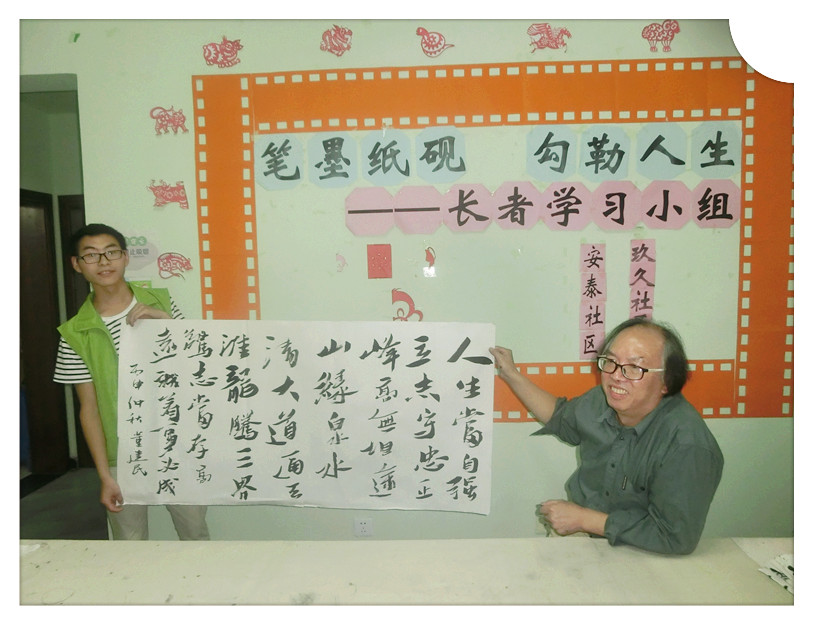 笔墨纸砚 勾勒人生
——长者学习小组
玖久社
安泰社区
人生當自强
立志守忠正
峰高無坦途
山緑泉水
清大道通云
龍騰三界
志當存高
遠執着事必成
丙申仲秋董建民